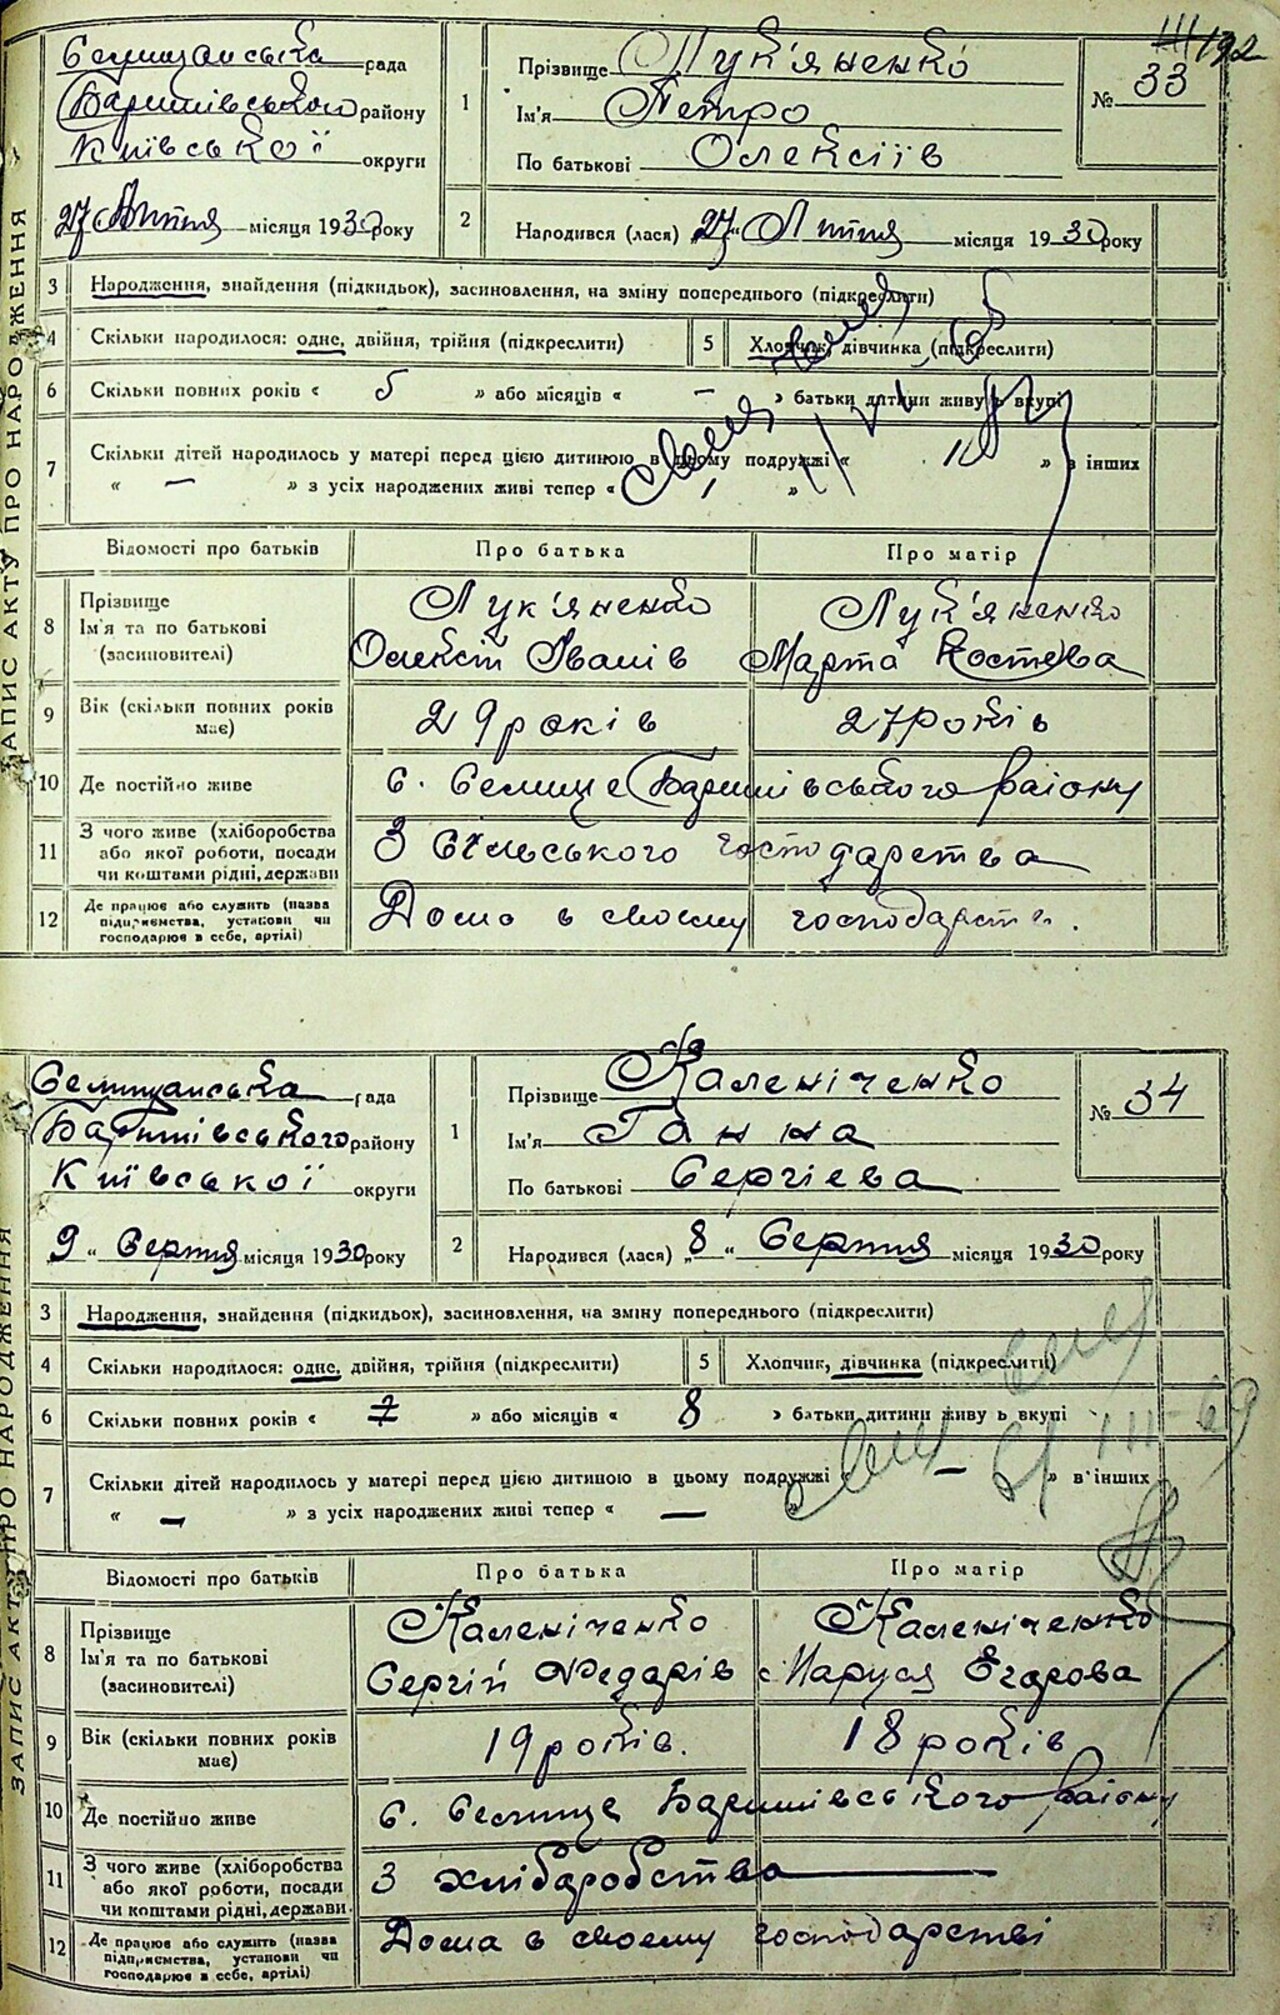 192
Селищанська рада
Баришівського району
Київської округи
27 Липня місяця 1930 року
1
Прізвище Лук'яненко
Ім'я Петро
По батькові Олексіїв
№ 33
2
Народився (лася) „27“ Липня місяця 1930 року
ЗАПИС АКТУ ПРО НАРОДЖЕННЯ
3 Народження, знайдення (підкидьок), засиновлення, на зміну попереднього (підкреслити)
4 Скільки народилося: одне, двійня, трійня (підкреслити)
5 Хлопчик, дівчинка (підкреслити)
6 Скільки повних років « 5 » або місяців « — » батьки дитини живуть вкупі
7 Скільки дітей народилось у матері перед цією дитиною в цьому подружжі « » в інших
« — » з усіх народжених живі тепер « 1 »
Відомості про батьків Про батька Про матір
8 Прізвище
Ім'я та по батькові
(засиновителі)
Лук'яненко
Олексій Іванів
Лук'яненко
Марта Костєва
9 Вік (скільки повних років
має)
29 років 27 років
10 Де постійно живе с. Селище Баришівського району
11 З чого живе (хліборобства
або якої роботи, посади
чи коштами рідні, держави
З сільського господарства
12 Де працює або служить (назва
підприємства, установи чи
господарює в себе, артілі)
Дома в своєму господарстві.
Селищанська рада
Баришівського району
Київської округи
9 „ Серпня місяця 1930 року
1
Прізвище Каленіченко
Ім'я Ганна
По батькові Сергієва
№ 34
2
Народився (лася) „8“ Серпня місяця 1930 року
ЗАПИС АКТУ ПРО НАРОДЖЕННЯ
3 Народження, знайдення (підкидьох), засиновлення, на зміну попереднього (підкреслити)
4 Скільки народилося: одне, двійня, трійня (підкреслити)
5 Хлопчик, дівчинка (підкреслити)
6 Скільки повних років « » або місяців « 8 » батьки дитини живуть вкупі
7 Скільки дітей народилось у матері перед цією дитиною в цьому подружжі « — » в інших
« — » з усіх народжених живі тепер « — »
Відомості про батьків Про батька Про матір
8 Прізвище
Ім'я та по батькові
(засиновителі)
Каленіченко
Сергій Федарів
Каленіченко
Маруся Єгарова
9 Вік (скільки повних років
має)
19 років. 18 років
10 Де постійно живе с. Селище Баришівського району
11 З чого живе (хліборобства
або якої роботи, посади
чи коштами рідні, держави.
З хлібаробства
12 Де працює або служить (назва
підприємства, установи чи
господарює в себе, артілі)
Дома в своєму господарстві